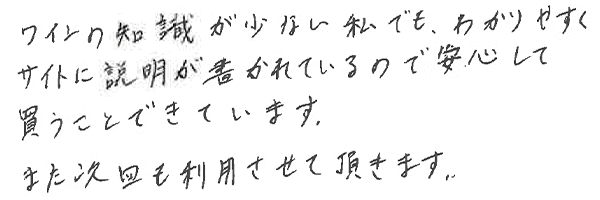 ワインの知識が少ない私でも、わかりやすく
サイトに説明が書かれているので安心して
買うことできています。
また次回も利用させて頂きます。